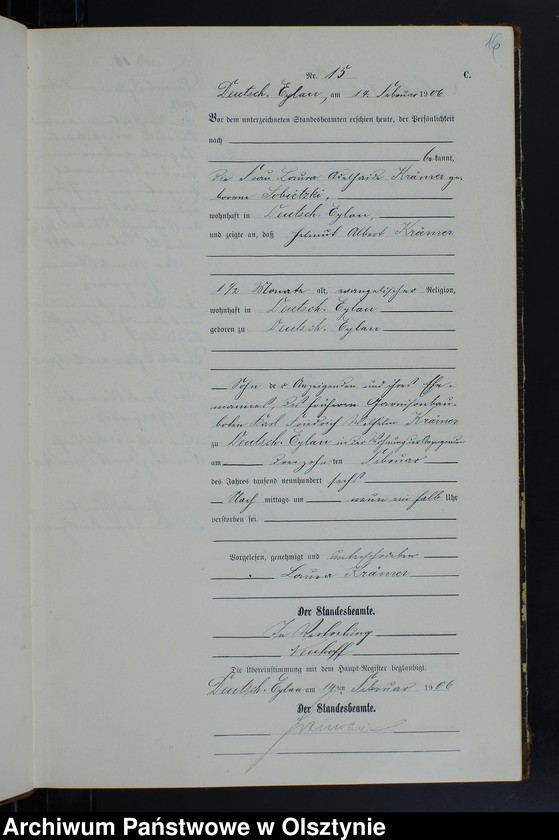 16
Nr. 15
C.
Deutsch-Eylau, am 14. Februar 1906
Vor dem unterzeichneten Standesbeamten erschien heute, der Persönlichkeit
nach
bekannt,
die Frau Laura Adelhaide Krämer ge-
borene Sobietzki,
wohnhaft in Deutsch-Eylau,
und zeigte an, daß Helmut Albert Krämer
1 1/2 Monate alt, evangelischer Religion,
wohnhaft in Deutsch-Eylau
geboren zu Deutsch-Eylau
Sohn der Anzeigenden und ihres Ehe-
mannes, des früheren Garnisonbau-
boten Karl Friedrich Wilhelm Krämer
zu Deutsch-Eylau in der Wohnung der Anzeigenden
am dreizehnten Februar
des Jahres tausend neunhundert sechs
Nachmittags um neun ein halb Uhr
verstorben sei.
Vorgelesen, genehmigt und unterschrieben
Laura Krämer
Der Standesbeamte.
In Vertretung
Die Übereinstimmung mit dem Haupt-Register beglaubigt.
Deutsch-Eylau am 14ten Februar 1906
Der Standesbeamte.
Archiwum Państwowe w Olsztynie